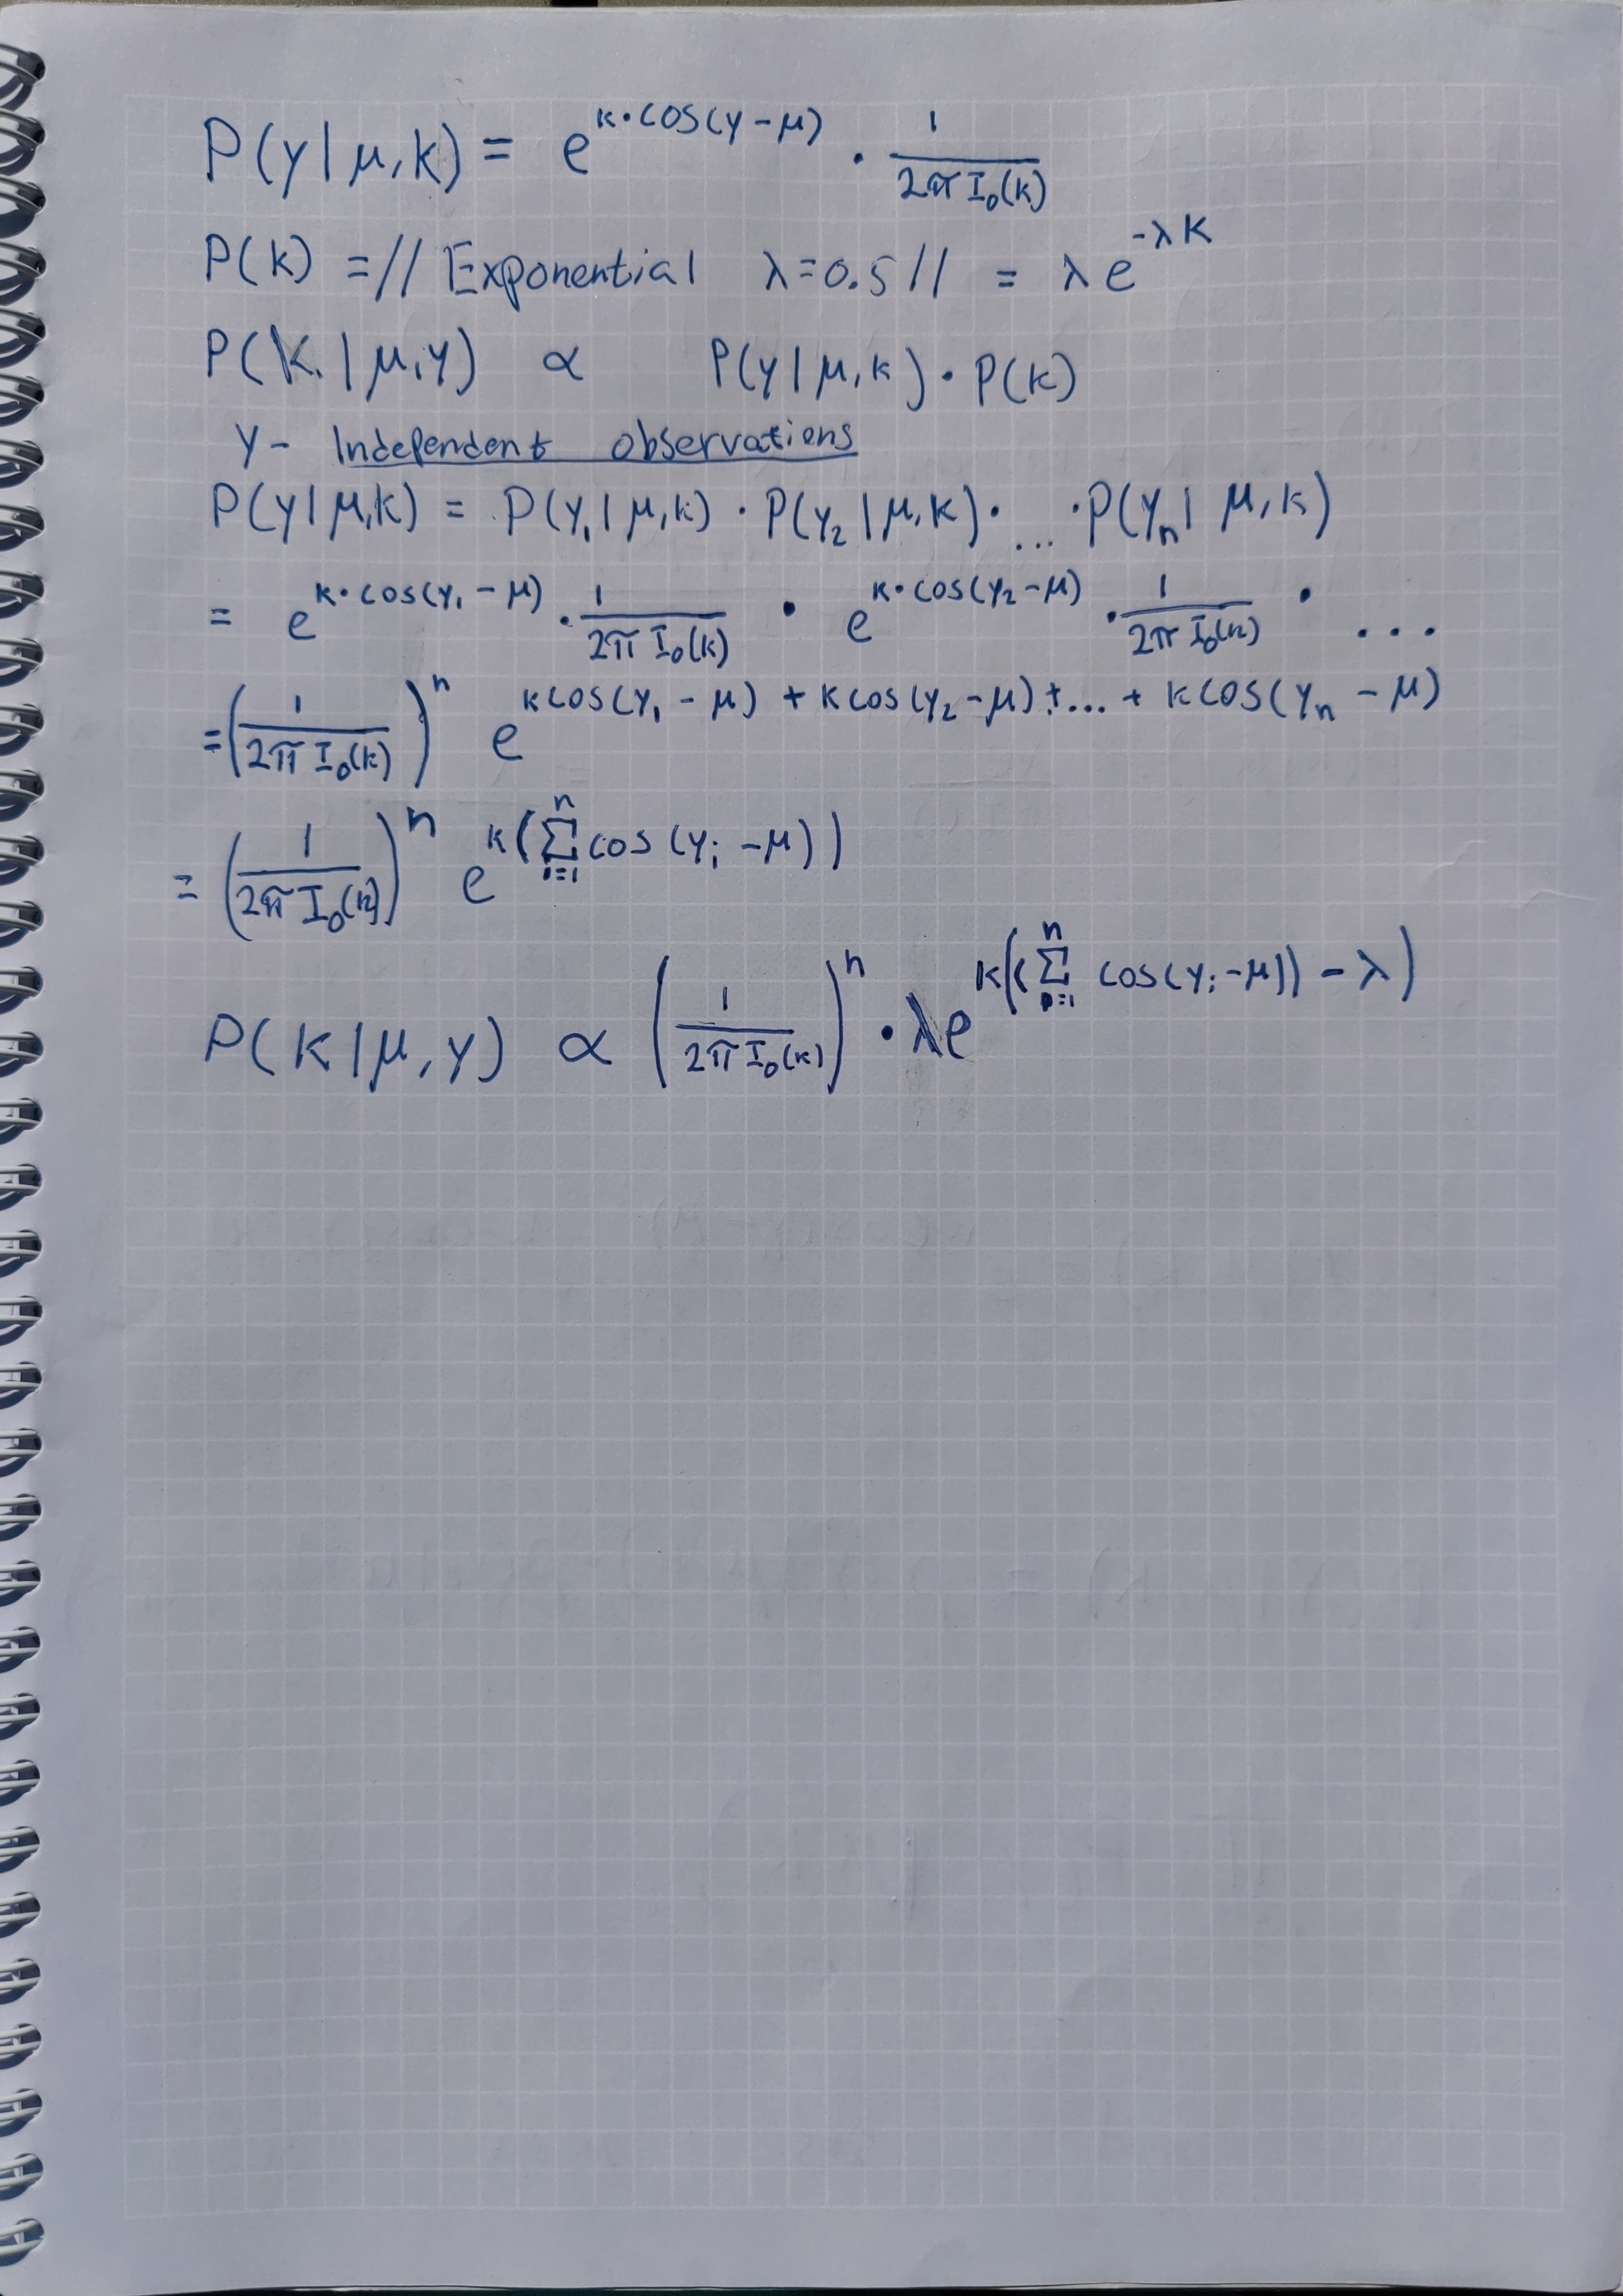 P(y|μ,k) = e^{k·cos(y-μ)} · 1/(2π I₀(k))
P(k) = // Exponential λ=0.5 // = λe^{-λk}
P(k|μ,y) ∝ P(y|μ,k)·P(k)
y - Independent observations
P(y|μ,k) = P(y₁|μ,k) · P(y₂|μ,k) · ... · P(yₙ|μ,k)
= e^{k·cos(y₁-μ)} · 1/(2π I₀(k)) · e^{k·cos(y₂-μ)} · 1/(2π I₀(k)) · ...
= (1/(2π I₀(k)))ⁿ e^{k cos(y₁-μ) + k cos(y₂-μ) + ... + k cos(yₙ-μ)}
= (1/(2π I₀(k)))ⁿ e^{k(∑_{i=1}^{n} cos(yᵢ-μ))}
P(k|μ,y) ∝ (1/(2π I₀(k)))ⁿ · λe^{k((∑_{i=1}^{n} cos(yᵢ-μ)) - λ)}